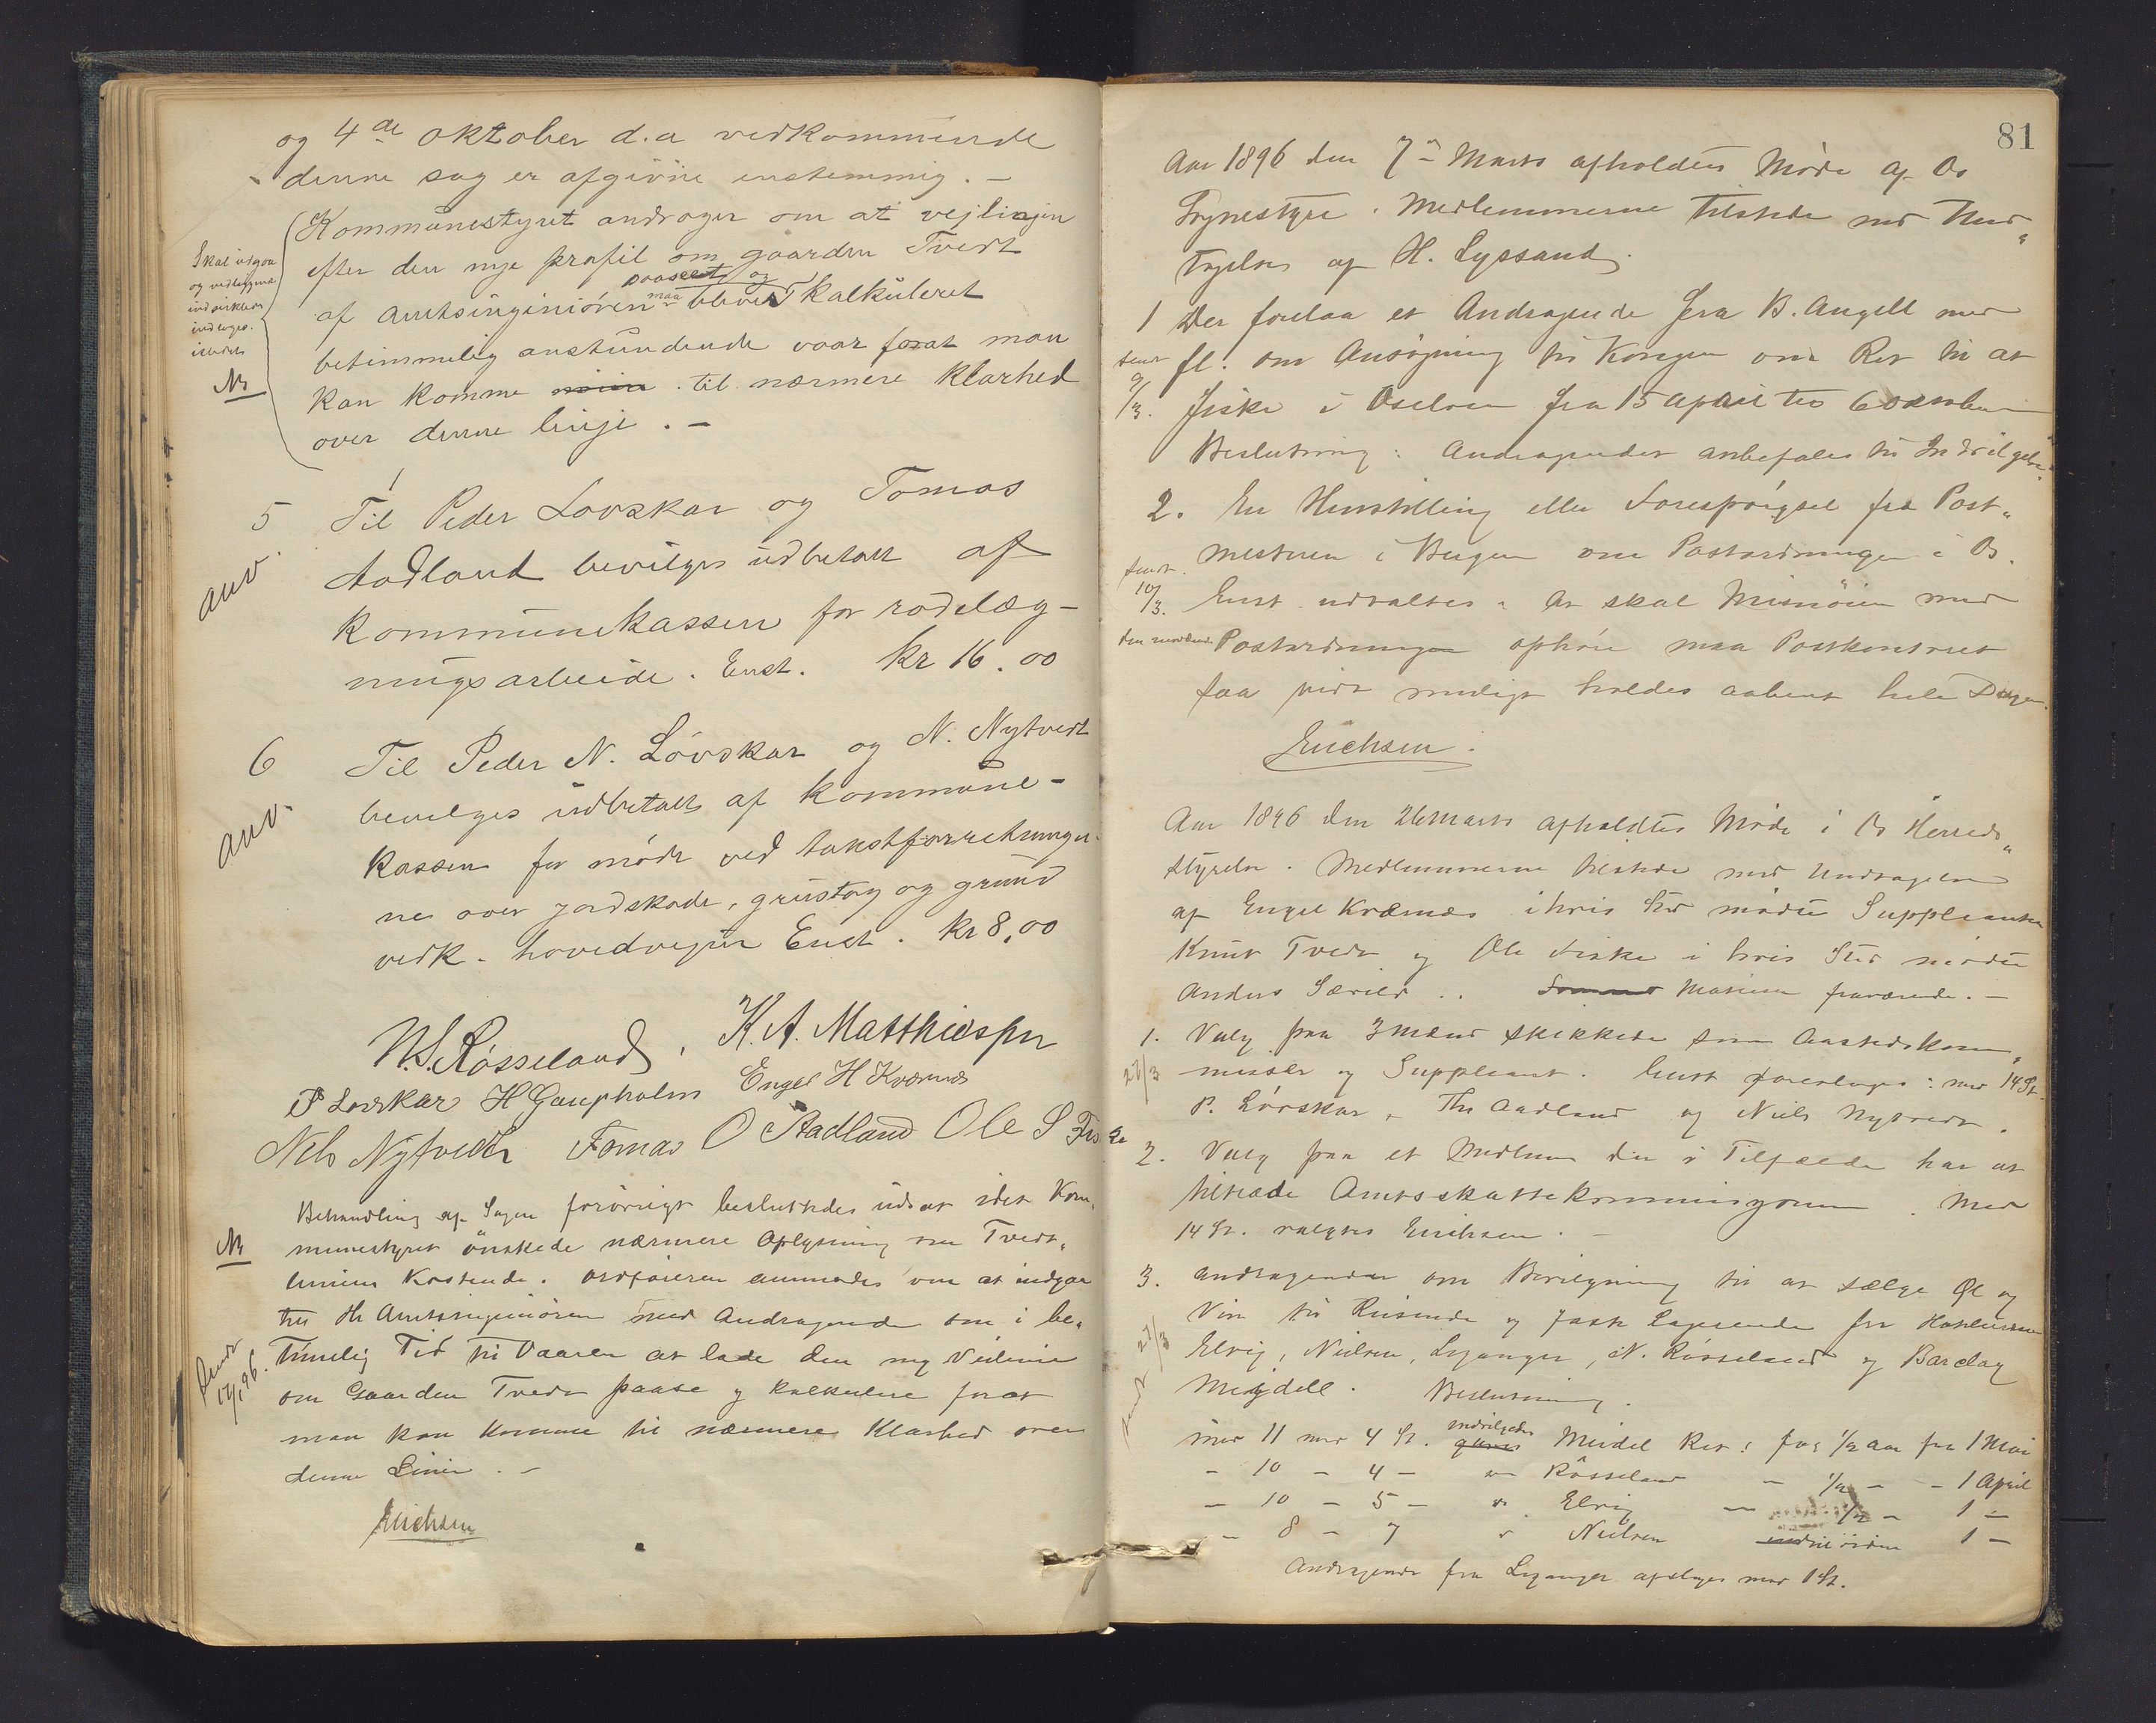 og 4de oktober d.a vedkommende
denne sag er afgivne enstemmig. –
Kommunestyret andrager om at vejlinjen
efter den nye profil om gaarden Tvedt
paaseet og
af amtsingeniören maa blive kalkuleret
betimmelig anstundende vaar forat man
kan komme til nærmere klarhed
over denne linje. –
Skal udgaa
og vedliggende
indtages.
istedet
NB
5 Til Peder Lövskar og Tomas
anv.
Aadland bevilges udbetalt af
kommunekassen for rodelæg-
ningsarbeide. Enst. kr 16.00
6 Til Peder N. Lövskar og N. Nytvedt
anv.
bevilges udbetalt af kommune-
kassen for möde ved takstforretninger-
ne over jordskade, grustag og grund
vedk. hovedvejen Enst. kr 8,00
N.S. Røsseland, K.A. Matthiesen
P Lövskar H Gaupholm Engel H Kvernes
Nels Nytvedt Tomas O Aadland Ole S Fiske
Behandling af Sagen forövrigt besluttedes udsat idet Kom„
NB
munestyret önskede nærmere Oplysning om Tvedt„
liniens Kostende. Ordföreren anmodes om at indgaa
til Hr Amtsingeniören med Andragende om i be„
timelig Tid til Vaaren at lade den nye Veilinie
Sendt 14/1 96.
om Gaarden Tvedt paase og kalkulere forat
man kan komme til nærmere Klarhed over
denne Linie. –
Erichsen
81
Aar 1896 den 7de Marts afholdtes Möde af Os
Sognestyre. Medlemmerne tilstede med Und„
tagelse af H. Lyssand.
1 Der forelaa et Andragende fra B. Angell med
sendt 9/3.
fl. om Ansögning til Kongen om Ret til at
fiske i Oselven fra 15 april til 6 October
Beslutning: Andragendet anbefales til Indvilgelse.
2. En Henstilling eller Forespörgsel fra Post„
mesteren i Bergen om Postordningen i Os.
sendt 10/3.
Enst. udtaltes: At skal Misnöien med
den nuværende Postordningen ophöre maa Postkontoret
saa vidt muligt holdes aabent hele Dagen.
Erichsen.
Aar 1896 den 26 Marts afholdtes Möde i Os Herreds„
styrelse. Medlemmerne tilstede med Undtagelse
af Engel Kvernes i hvis Sted mödte Suppleanten
Knut Tvedt og Ole Fiske i hvis Sted mödte
Anders Særvold.. Mariues fraværende. –
1. Valg paa 3 Mænd skikkede som Aastedskom„
27/3
missær og Suppleant. Enst foresloges: med 14 St.
P. Lövskar, Ths Aadland og Niels Nytvedt.
2. Valg paa et Medlem der i Tilfælde har at
tiltræde Amtsskattekommissjonen. Med
14 St. valgtes Erichsen. –
3. Andragender om Bevilgning til at sælge Øl og
Vin til Reisende og faste Logerende fra Hotelierne
sendt 27/3
Elvig, Nielsen, Leganger, N. Røsseland og Barclay
Meydell. Beslutning.
med 11 mod 4 St. indvilgedes Meidel Ret: for 1/2 Aar fra 1 Mai
– 10 – 4 – Røsseland – 1/2 – – 1 April
– 10 – 5 – Elvig – 1/2 – 1 –
– 8 – 7 Nielsen 1 –
Andragende fra Leganger afsloges med 1 St.